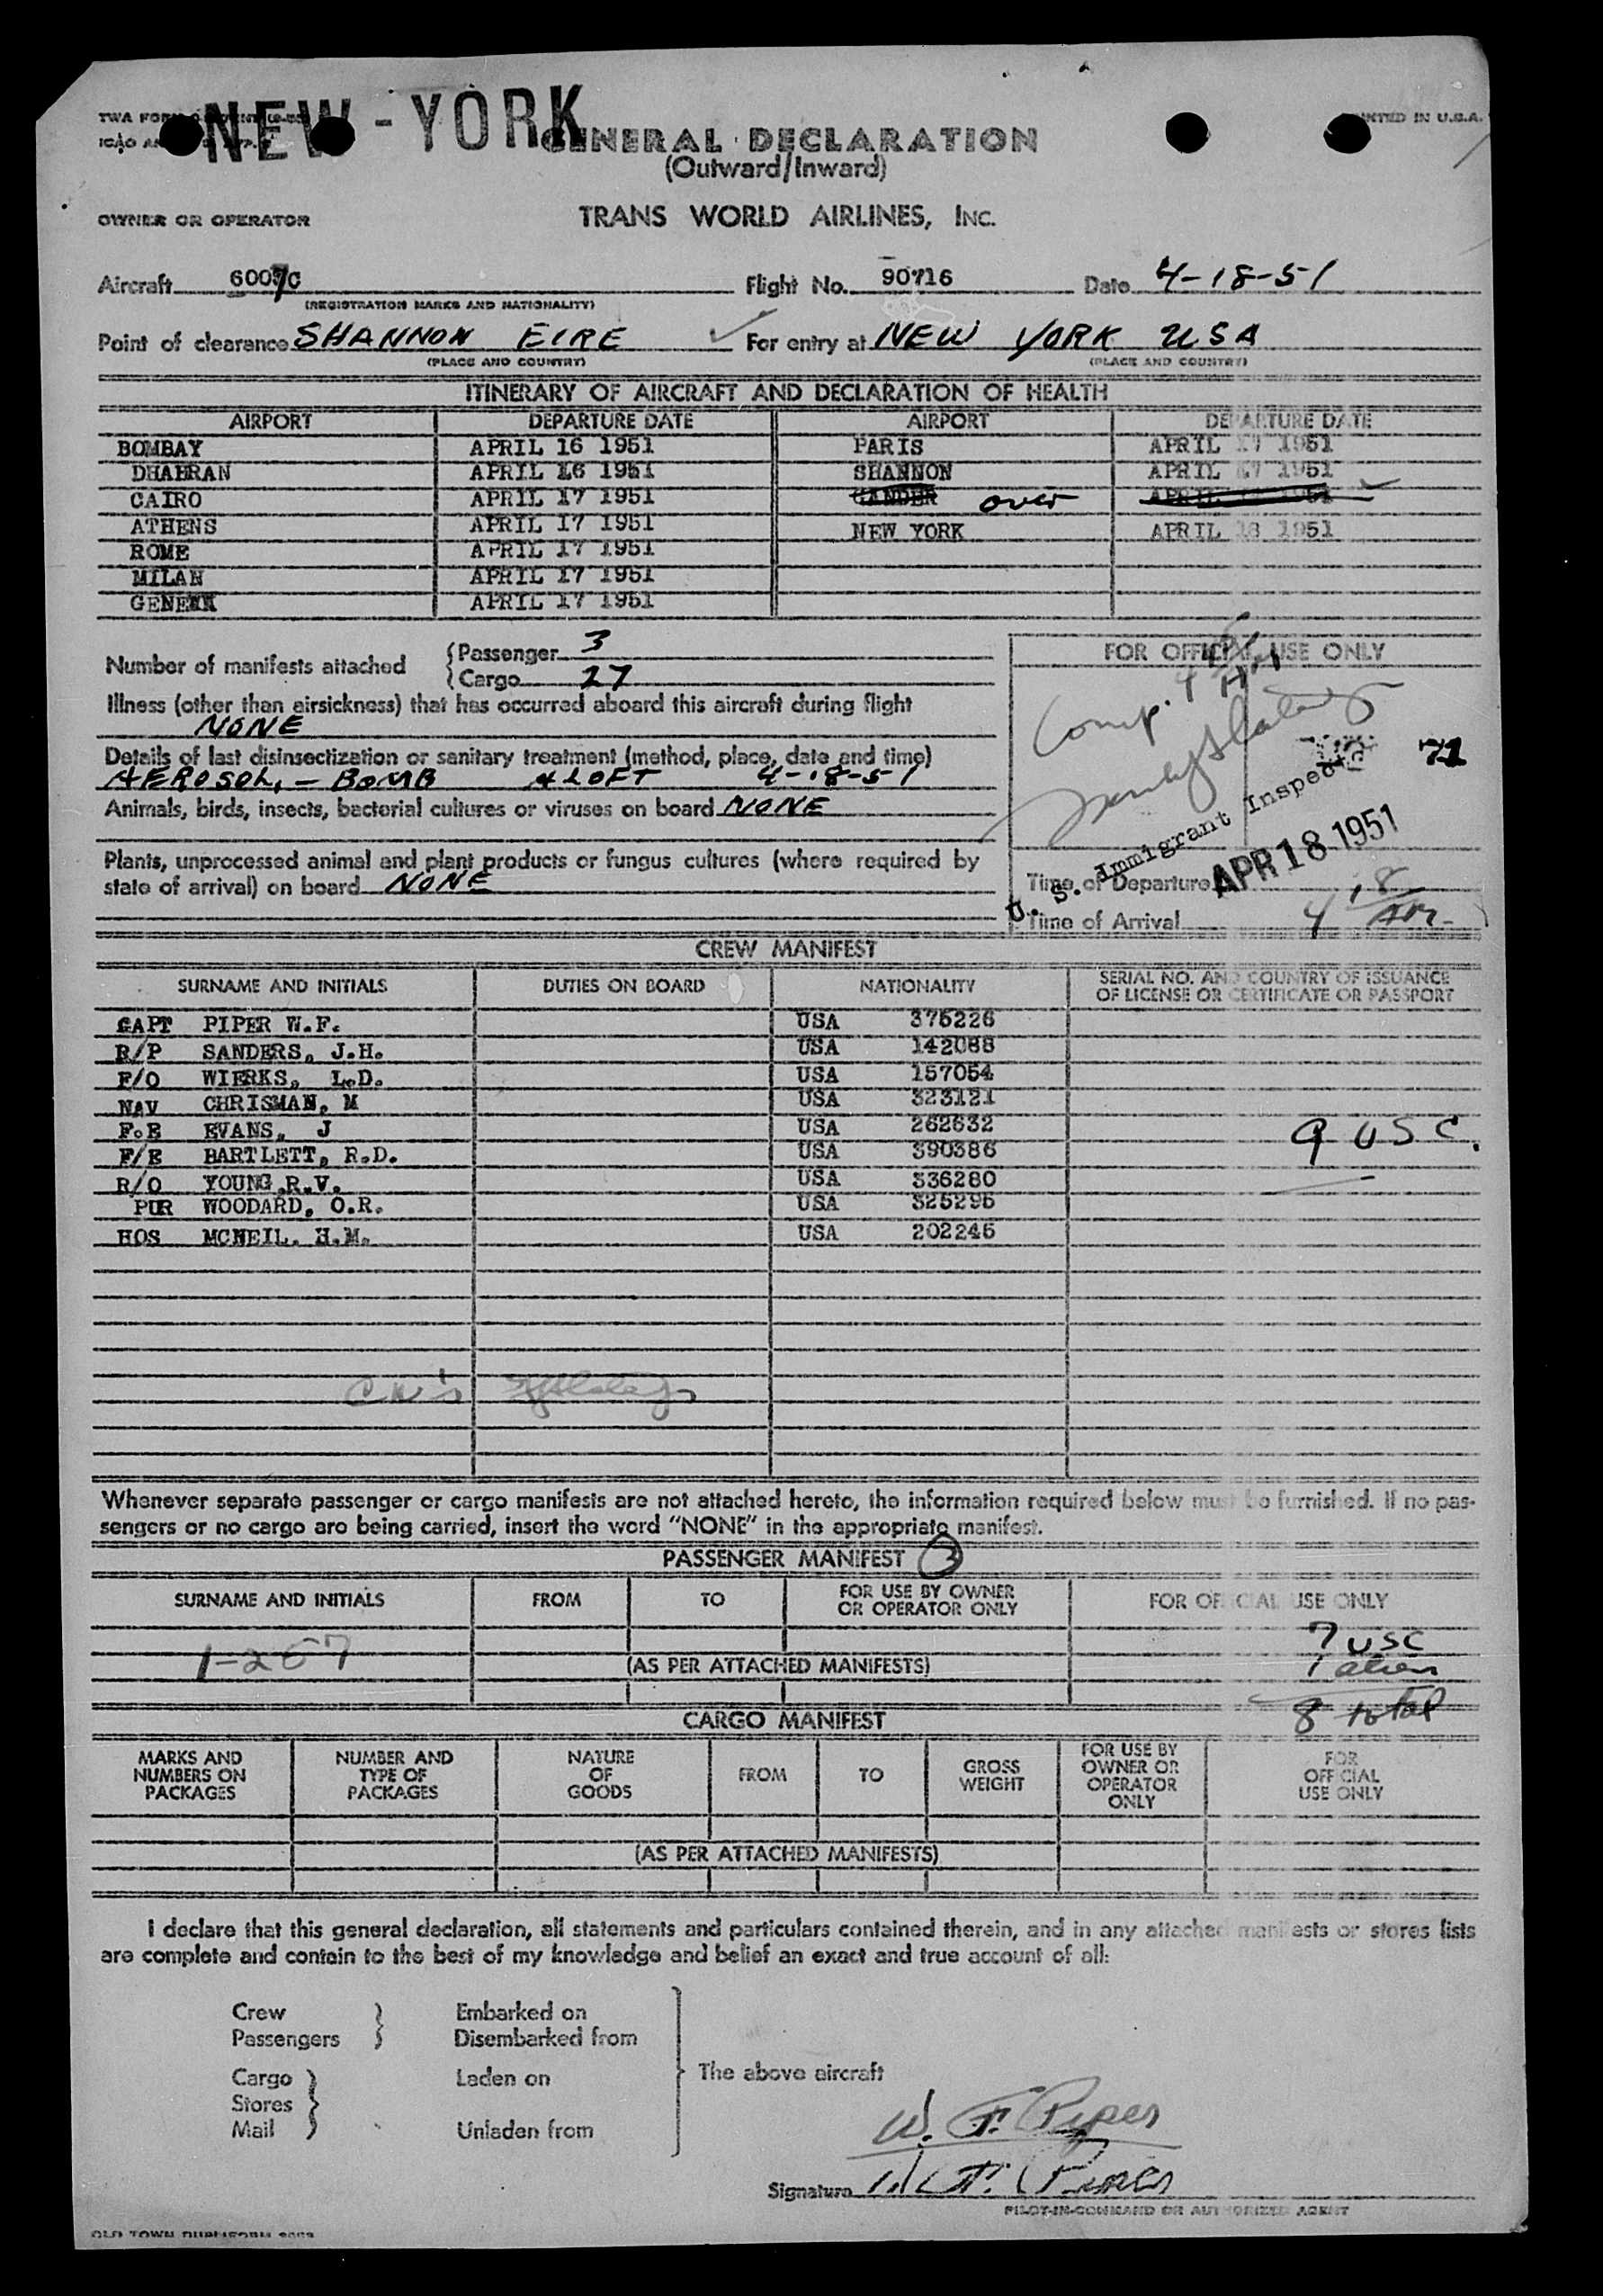 NEW-YORK
GENERAL DECLARATION
PRINTED IN U.S.A.
(Outward/Inward)
OWNER OR OPERATOR TRANS WORLD AIRLINES, INC.
Aircraft Flight No. 90716 Date 4-18-51
(REGISTRATION MARKS AND NATIONALITY)
Point of clearance SHANNON EIRE For entry at NEW YORK USA
(PLACE AND COUNTRY) (PLACE AND COUNTRY)
ITINERARY OF AIRCRAFT AND DECLARATION OF HEALTH
AIRPORT DEPARTURE DATE AIRPORT DEPARTURE DATE
BOMBAY APRIL 16 1951 PARIS APRIL 17 1951
DHAHRAN APRIL 16 1951 SHANNON APRIL 17 1951
CAIRO APRIL 17 1951 GANDER over APRIL 1951
ATHENS APRIL 17 1951 NEW YORK APRIL 18 1951
ROME APRIL 17 1951
MILAN APRIL 17 1951
APRIL 17 1951
Number of manifests attached Passenger 3
Cargo 27
FOR OFFICIAL USE ONLY
Illness (other than airsickness) that has occurred aboard this aircraft during flight
NONE
Comp.
Details of last disinsectization or sanitary treatment (method, place, date and time)
AEROSOL - BOMB ALOFT 4-18-51
71
Animals, birds, insects, bacterial cultures or viruses on board NONE
U. S. Immigrant Inspector
APR 18 1951
Plants, unprocessed animal and plant products or fungus cultures (where required by
state of arrival) on board NONE
Time of Departure
Time of Arrival
CREW MANIFEST
SURNAME AND INITIALS DUTIES ON BOARD NATIONALITY SERIAL NO. AND COUNTRY OF ISSUANCE
OF LICENSE OR CERTIFICATE OR PASSPORT
CAPT PIPER W.F. USA 375226
R/P SANDERS, J.H. USA 142088
F/O WIERKS, L.D. USA 157054
NAV CHRISMAN, M USA 323121
F.E EVANS, J USA 262632
9 USC.
F/E BARTLETT, R.D. USA 390386
R/O YOUNG.R.V. USA 336280
PUR WOODARD, O.R. USA 325295
HOS MCNEIL. H.M. USA 202245
Whenever separate passenger or cargo manifests are not attached hereto, the information required below must be furnished. If no pas-
sengers or no cargo are being carried, insert the word "NONE" in the appropriate manifest.
PASSENGER MANIFEST 3
SURNAME AND INITIALS FROM TO FOR USE BY OWNER
OR OPERATOR ONLY FOR OFFICIAL USE ONLY
7 USC
1-267 (AS PER ATTACHED MANIFESTS) 1 alien
8 total
CARGO MANIFEST
MARKS AND
NUMBERS ON
PACKAGES
NUMBER AND
TYPE OF
PACKAGES
NATURE
OF
GOODS
FROM
TO
GROSS
WEIGHT
FOR USE BY
OWNER OR
OPERATOR
ONLY
FOR
OFFICIAL
USE ONLY
(AS PER ATTACHED MANIFESTS)
I declare that this general declaration, all statements and particulars contained therein, and in any attached manifests or stores lists
are complete and contain to the best of my knowledge and belief an exact and true account of all:
Crew Embarked on
Passengers Disembarked from
Cargo Laden on The above aircraft
Stores
Mail Unladen from
W. F. Piper
Signature W. F. Piper
PILOT-IN-COMMAND OR AUTHORIZED AGENT